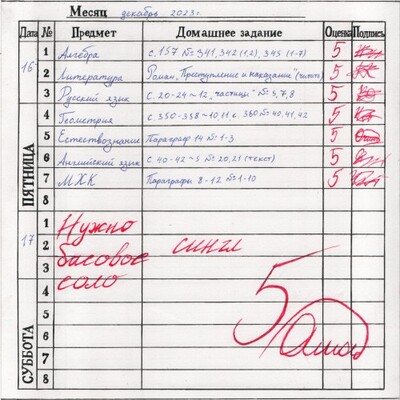 Месяц декабрь 2023 г.
Дата № Предмет Домашнее задание Оценка Подпись
16 ПЯТНИЦА
1 Алгебра с. 157 № 341, 342 (1,2), 345 (1-7) 5
2 Литература Роман „Преступление и наказание" (читать) 5
3 Русский язык с. 20-24~12 „частицы" № 5, 7, 8 5
4 Геометрия с. 350-358~10,11 с. 360 № 40, 41, 42 5
5 Естествознание Параграф 14 № 1-3 5
6 Английский язык с. 40-42~5 № 20, 21 (текст) 5
7 МХК Параграфы 8-12 № 1-10 5
8
17 СУББОТА
1 Нужно
2 басовое сингл
3 соло
4
5 5
6
7
8